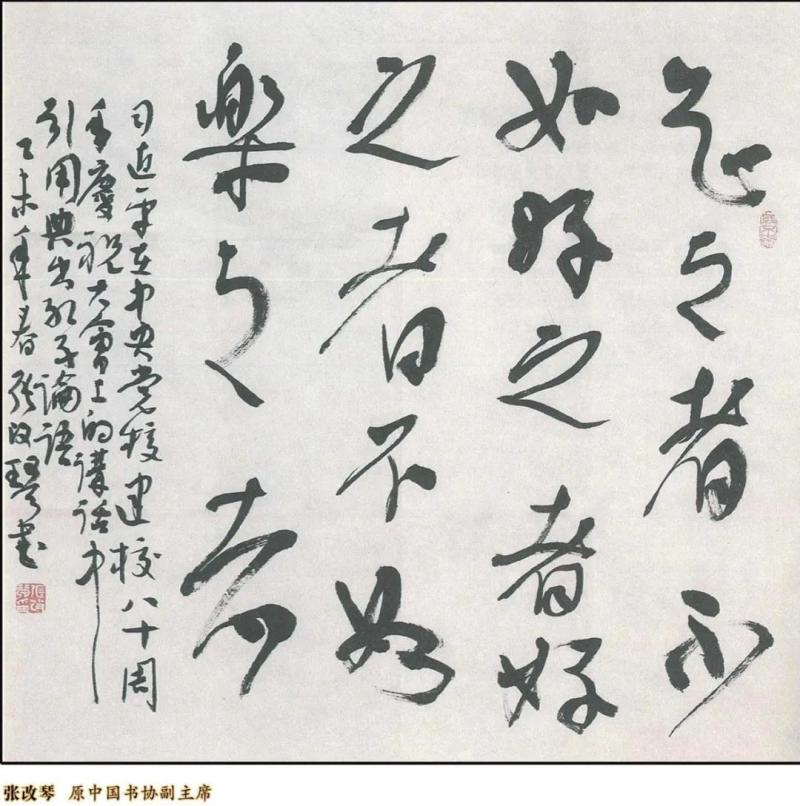 知之者不
如好之者好
之者不如
樂之者
习近平在中央党校建校八十周
年慶祝大會上的講話中
引用典出孔子論語
乙未年春張改琴書
张改琴 原中国书协副主席